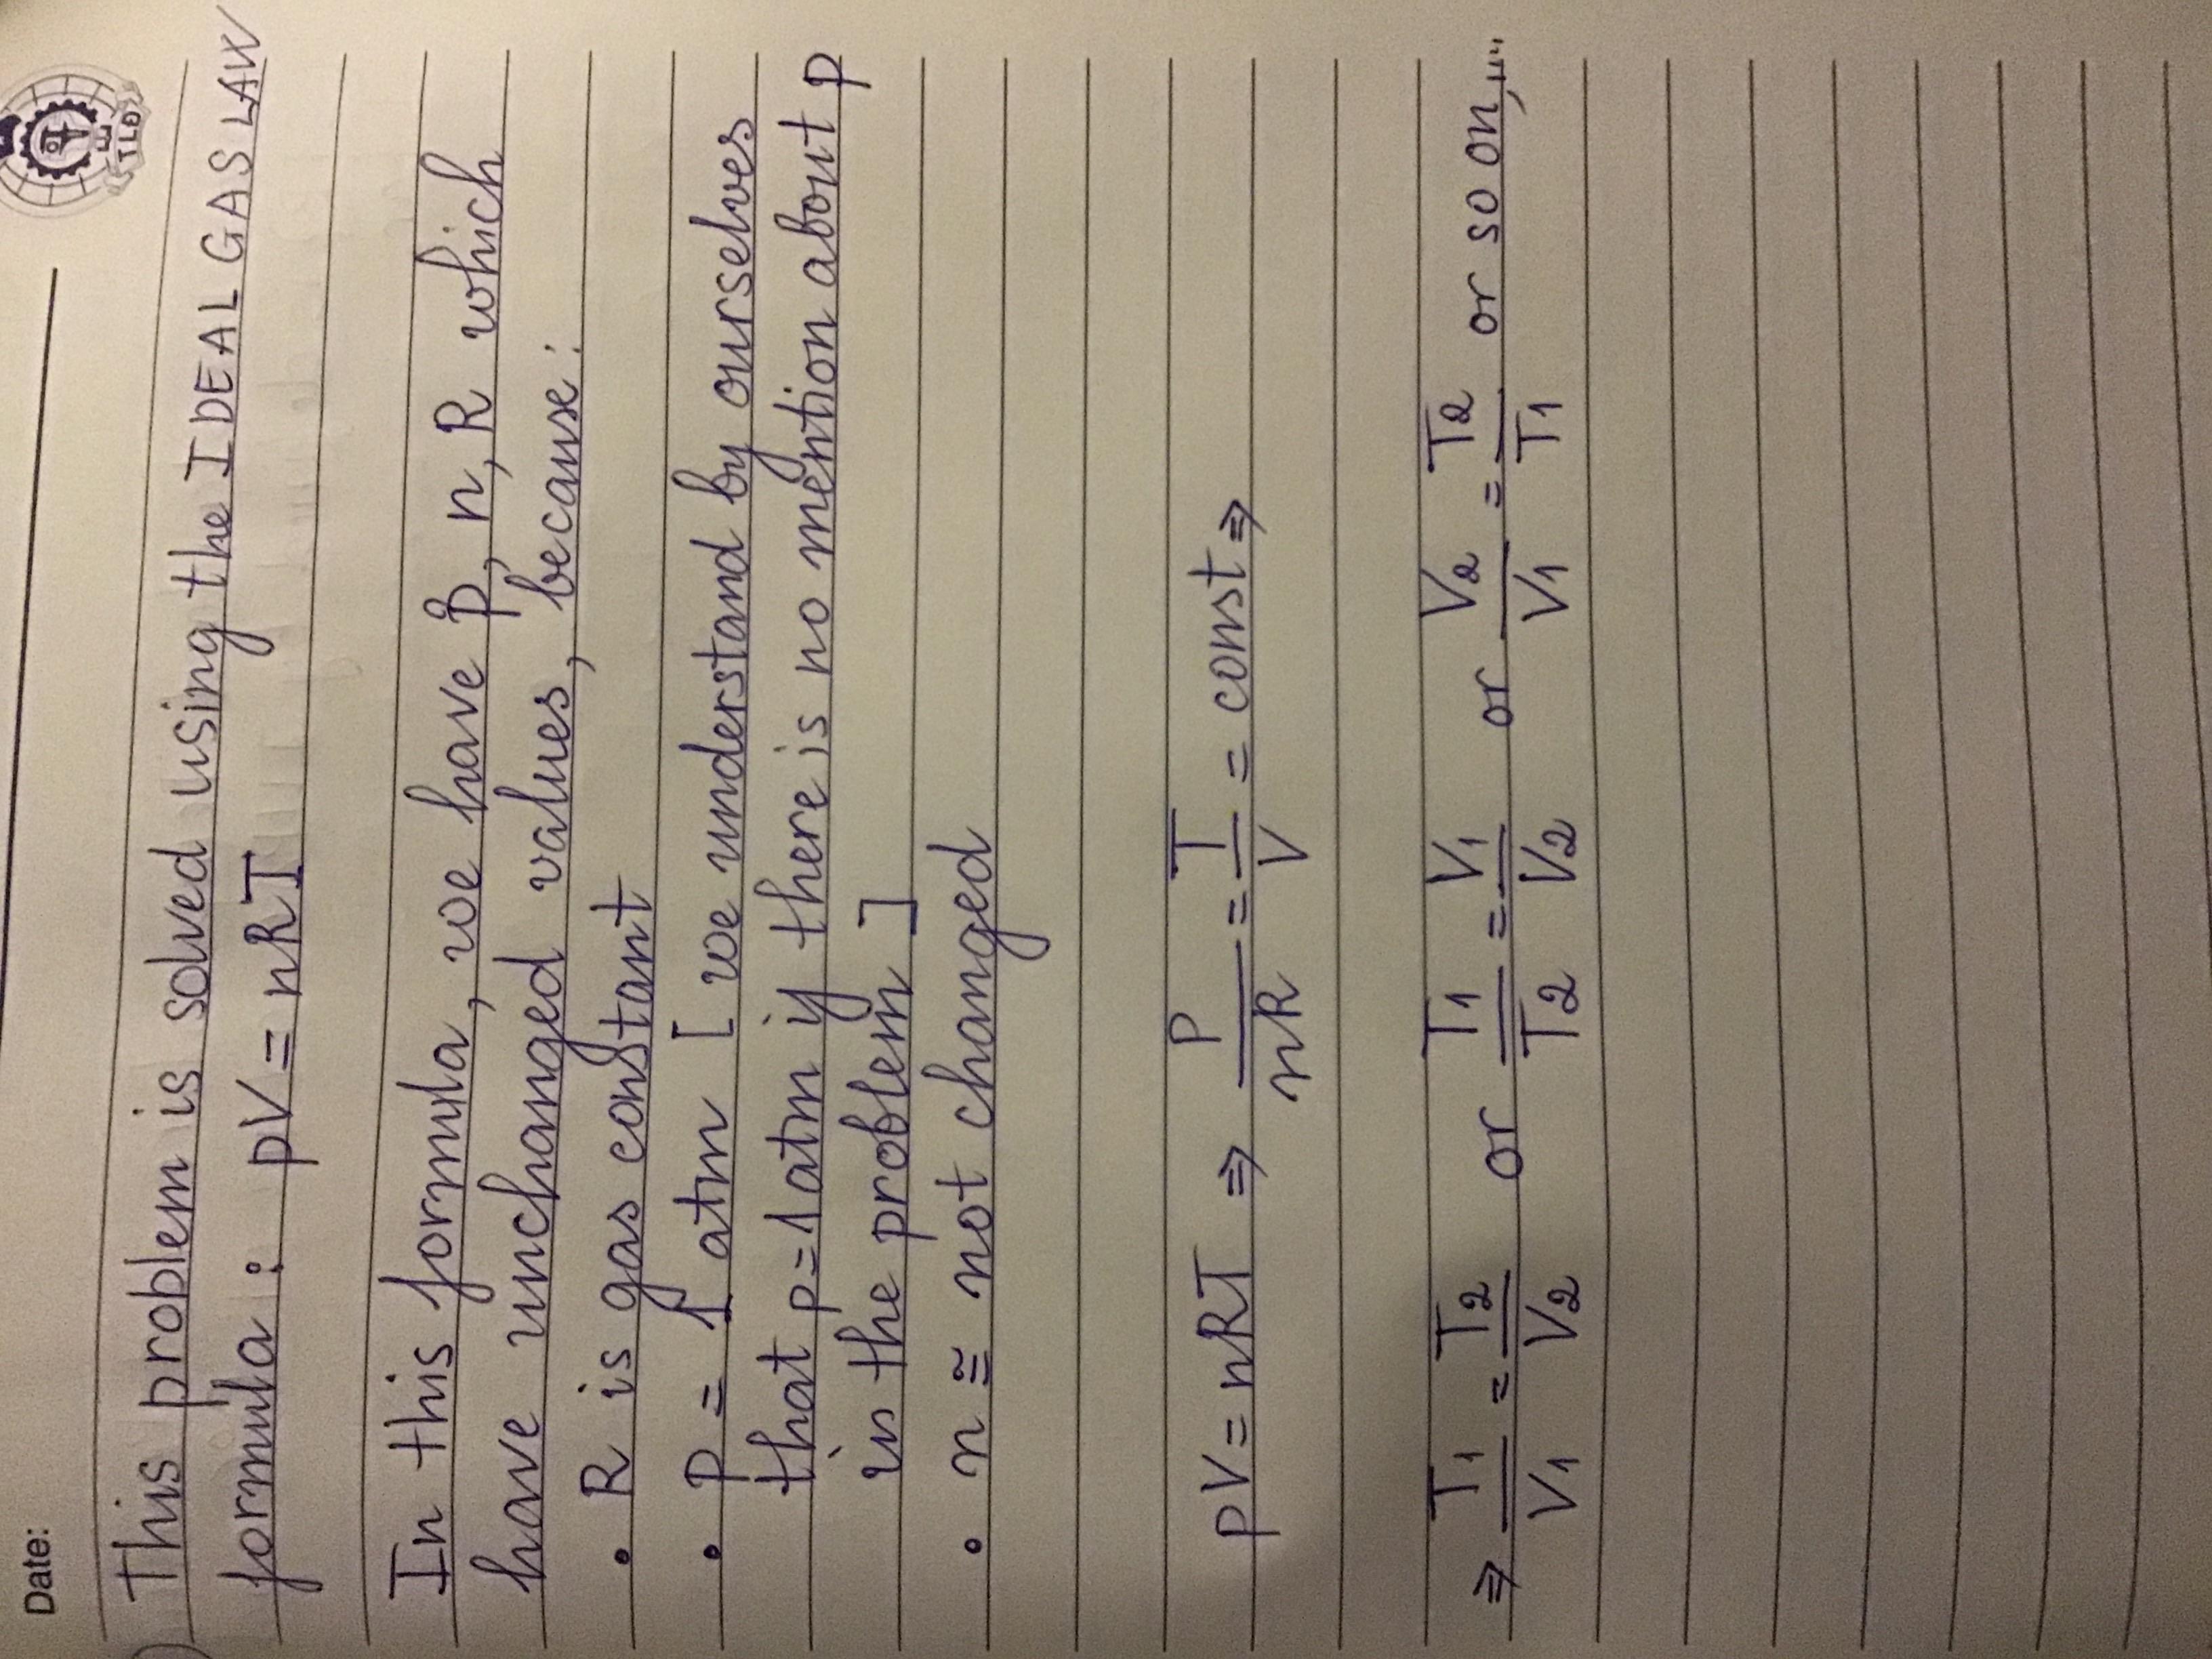 Date:
TLĐ
This problem is solved using the IDEAL GAS LAW
formula : pV = nRT
In this formula, we have p, n, R which
have unchanged values, because :
• R is gas constant
• P = 1 atm [ we understand by ourselves
that p = 1 atm if there is no mention about p
in the problem ]
• n ≅ not changed
pV = nRT ⇒ P/nR = T/V = const ⇒
⇒ T1/V1 = T2/V2 or T1/T2 = V1/V2 or V2/V1 = T2/T1 or so on,...